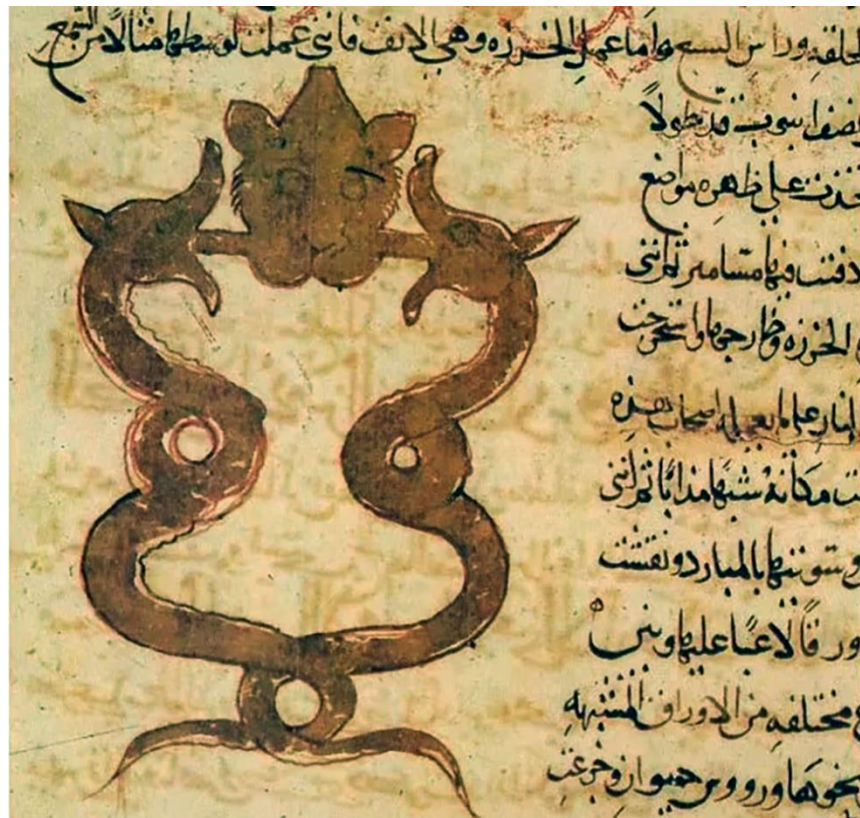 الحلقه وراس السبع واما عمل الخرزه وهي الانف فانني عملت لوسطها مثالا من الشمع
نصف انبوب قد طولا
اتخذت على ظهره مواضع
فيها مسامير ثم انني
الخرزه وخارجها واستخرجت
بالنار على ما يعمله اصحاب هذه
مكانه شبها مذابا ثم انني
وسويتها بالمبارد ونقشت
عليها وبني
مختلفه من الاوراق المشبهه
ونحوها ورووس حيوان وفرغت